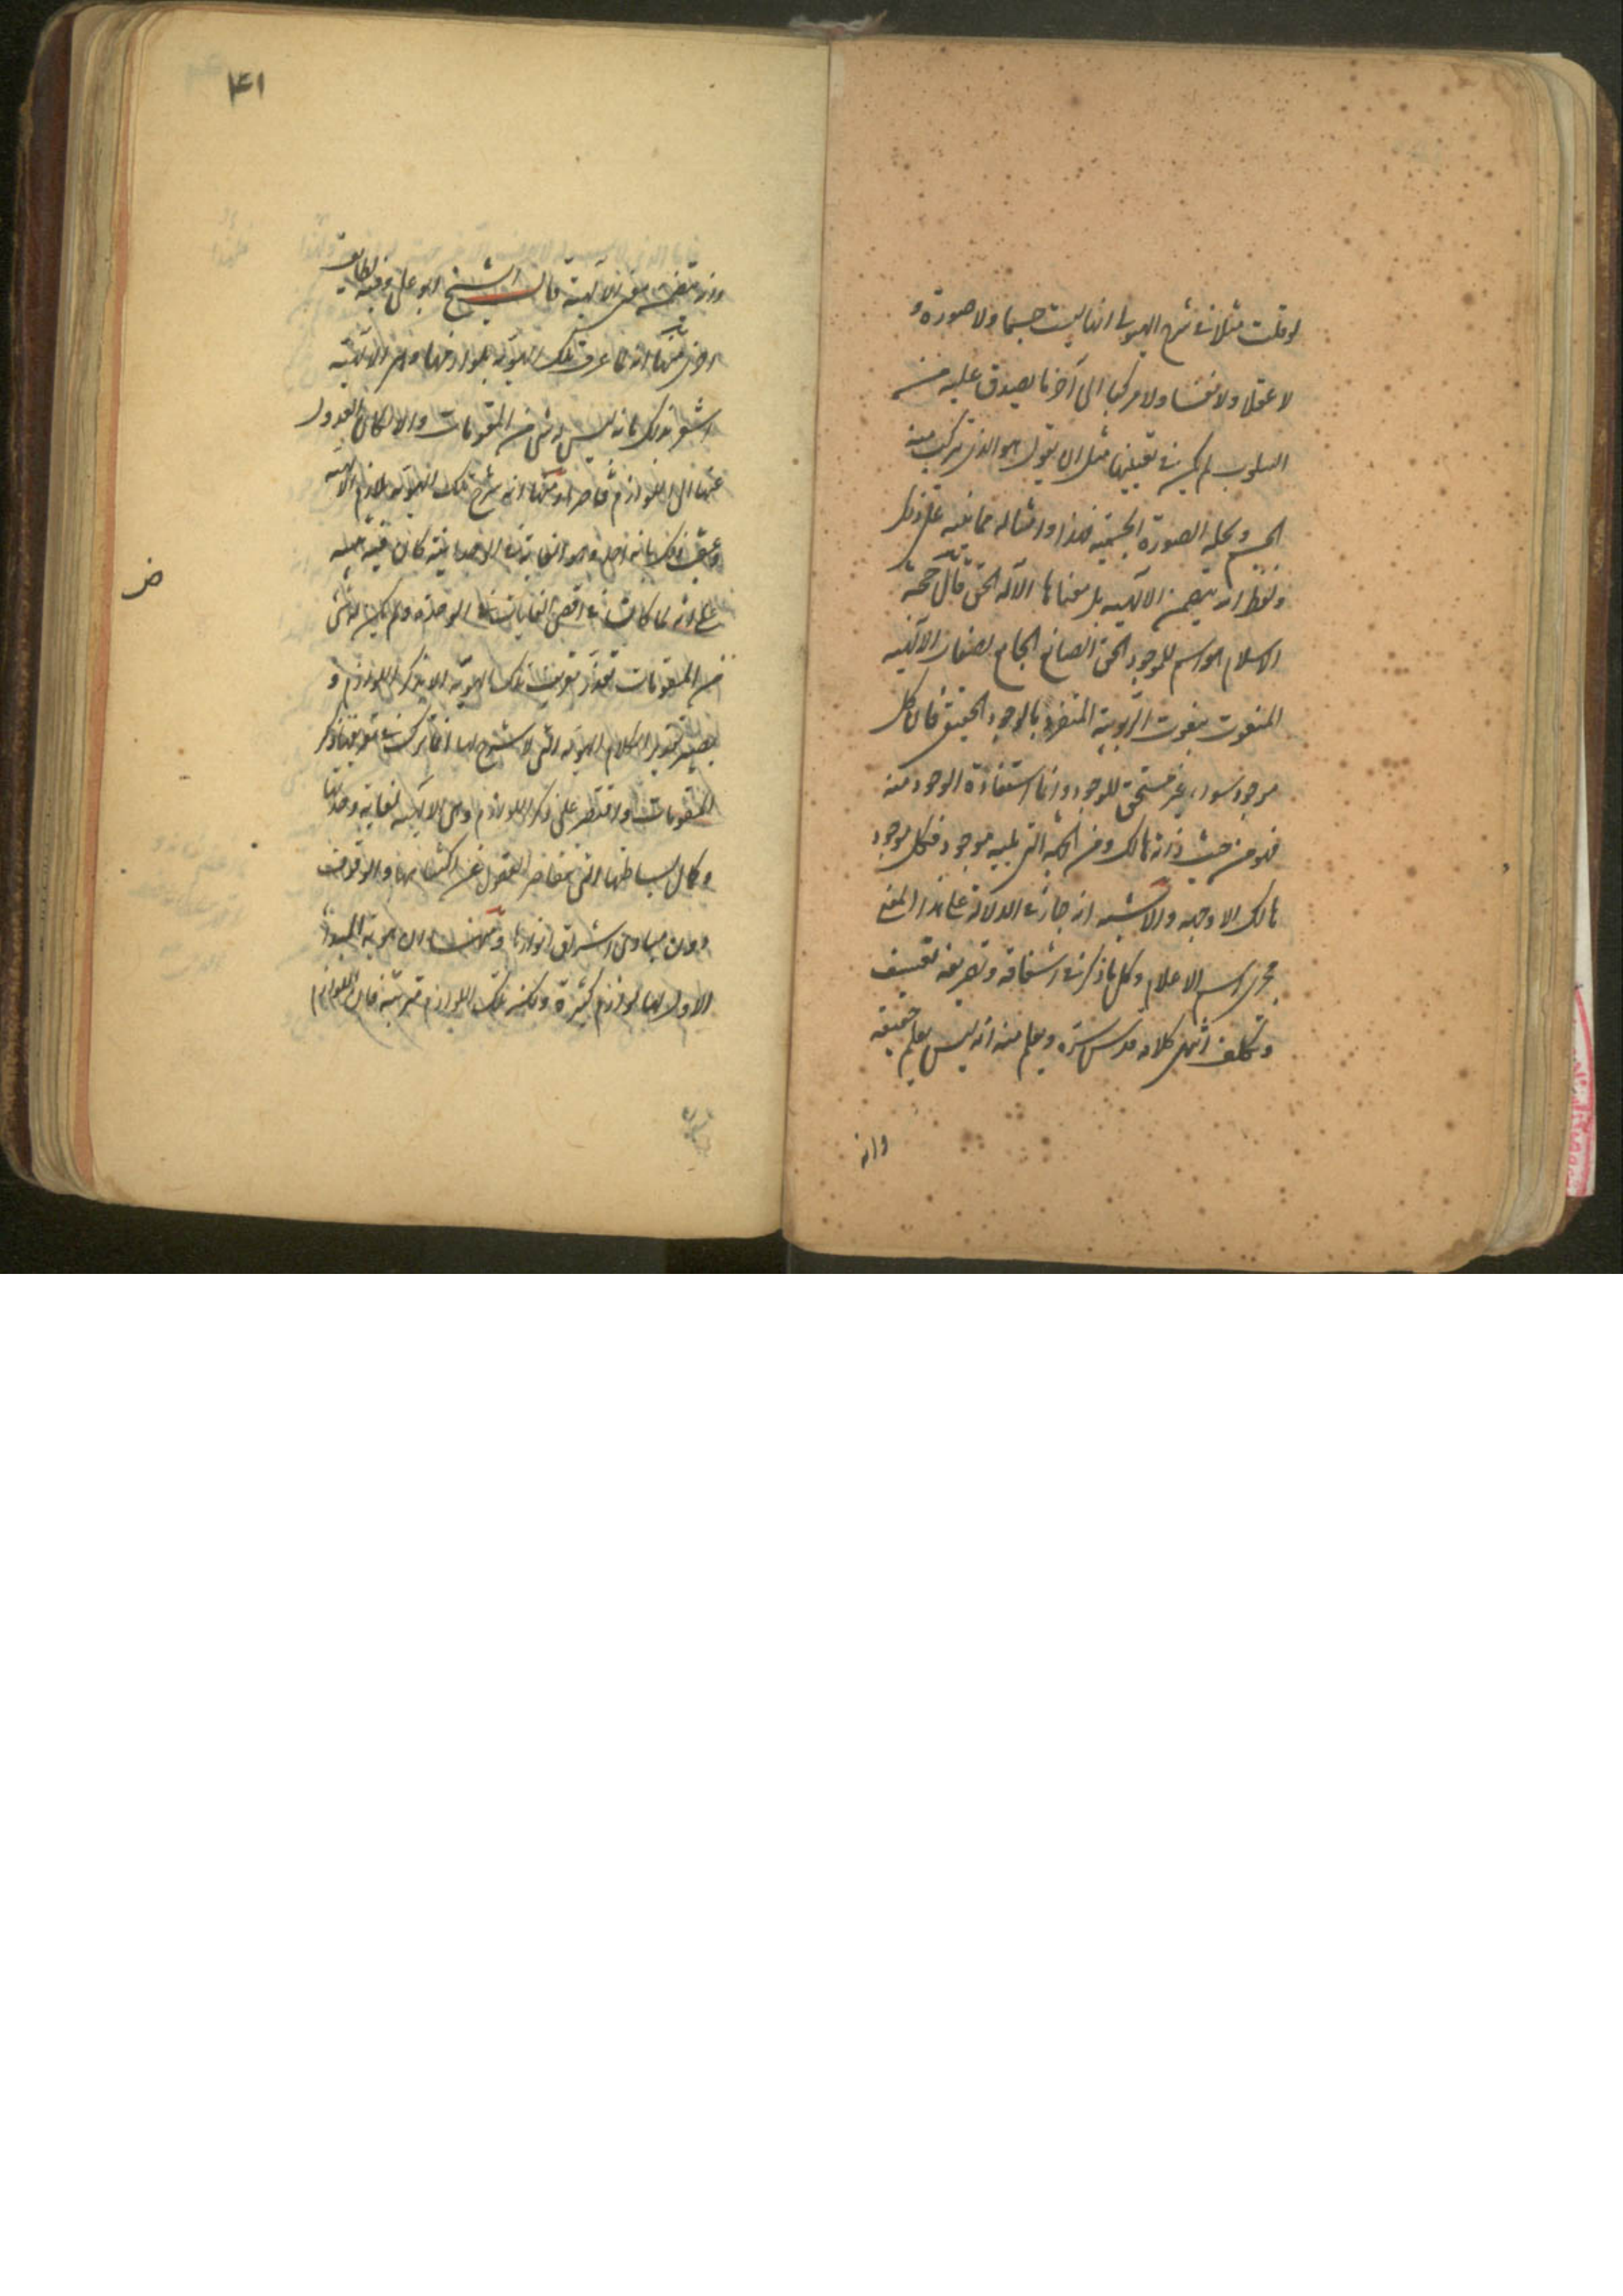 لو قلت مثلا فى شرح الهيولى انها ليست جسما ولا صورة و
لا عقلا ولا نفسا ولا مركبا الى آخر ما يصدق عليه من
السلوب لم يكن فى تعقيبها مثل ان يقول هو الذى تركب منه
الجسم ومحله الصورة الجسمية فهذا وامثاله مما ينبه على ذلك
ولفظ الله يتضمن الالهيه بل معناها الاله الحق قال حجة
الاسلام هو اسم للموجود الحق الجامع لصفات الالهيه
المنعوت بنعوت الربوبية المتفرد بالوجود الحقيقى فان كل
موجود سواه غير مستحق للوجود وانما استفاده الوجود منه
فهو من حيث ذاته هالك ومن الجهة التى تليه موجود فكل موجود
هالك الا وجهه والاشبه انه جار فى الدلالة على هذا المعنى
مجرى اسم الاعلام وكل ما ذكر فى اشتقاقه وتعريفه تعسف
وتكلف انتهى كلامه قدس سره ويعلم منه انه ليس بعلم حقيقة
وانه
۴۱
وانه متضمن معنى الالهية قال الشيخ ابو على وفيه لطايف
اخرى منها انه لما عرف تلك الهوية بلوازمها وهى الالهية
اشعر ذلك بانه ليس له شئ من المقومات والا لكان العدول
عنها الى اللوازم قاصرا ومنها انه شرح تلك الهوية بلازم الالهية
وعقب ذلك بانه احد وهو الغاية فى الاحدانية كان فيه تنبيه
على انه لما كانت فى اقصى الغايات فى الوحدة ولم يكن له شئ
من المقومات تعذر تعريف تلك الهوية الا بذكر اللوازم و
يصير تقدير الكلام الهوية التى لا شرح لها انما تركت فى تعريفها ذكر
المقومات واقتصر على ذكر اللوازم وهى الالهية لغاية وحدتها
وكمال بساطتها التى تتقاصر العقول عن اكتناهها والوقوف
دون مبادى اشراق انوارها ومنها ان هوية المبدأ
الاول لها لوازم كثيرة ولكن تلك اللوازم مترتبة فان اللوازم
ض